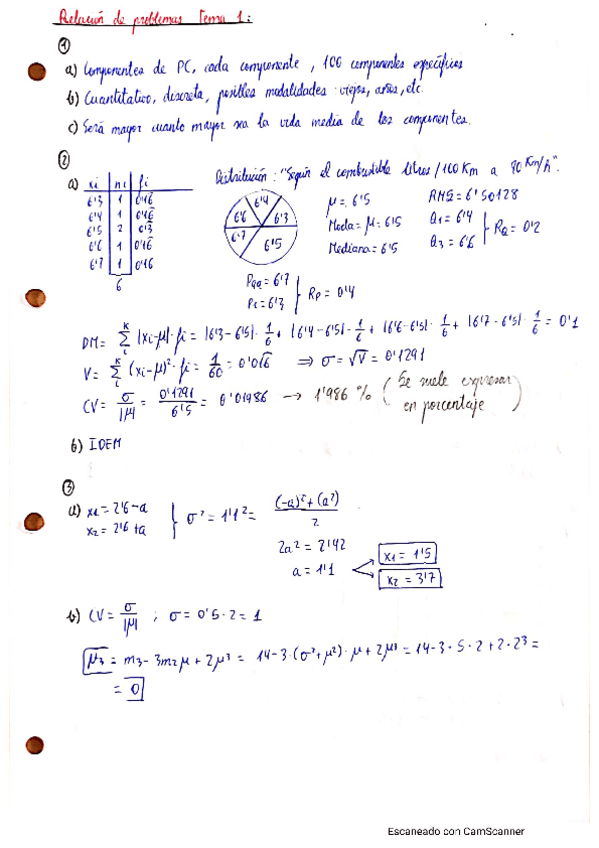 Relación de problemas Tema 1:
1
a) Componentes de PC, cada componente, 100 componentes específicos
b) Cuantitativo, discreta, posibles modalidades: viejos, años, etc.
c) Será mayor cuanto mayor sea la vida media de los componentes.
2
a) xi ni fi
6'3 1 0'16
6'4 1 0'16
6'5 2 0'3
6'6 1 0'16
6'7 1 0'16
6
Distribución: "Según el combustible litros/100Km a 90 Km/h".
6'4 6'3 6'5 6'7 6'6
μ = 6'5
Moda = μ = 6'5
Mediana = 6'5
RMS = 6'50128
Q1 = 6'4
Q3 = 6'6
RQ = 0'2
P99 = 6'7
P1 = 6'3
Rp = 0'4
DM = Σ |xi-μ|·fi = |6'3-6'5|·1/6 + |6'4-6'5|·1/6 + |6'6-6'5|·1/6 + |6'7-6'5|·1/6 = 0'1
V = Σ (xi-μ)²·fi = 1/60 = 0'016 ⇒ σ = √V = 0'1291
CV = σ/|μ| = 0'1291/6'5 = 0'01986 → 1'986 % (Se suele expresar en porcentaje)
b) IDEM
3
a) x1 = 2'6-a
x2 = 2'6+a
σ² = 1'1² = (-a)²+(a²)/2
2a² = 2'42
a = 1'1
x1 = 1'5
x2 = 3'7
b) CV = σ/|μ| ; σ = 0'5·2 = 1
μ3 = m3 - 3m2μ + 2μ³ = 14-3·(σ²+μ²)·μ+2μ³ = 14-3·5·2+2·2³ =
= 0
Escaneado con CamScanner